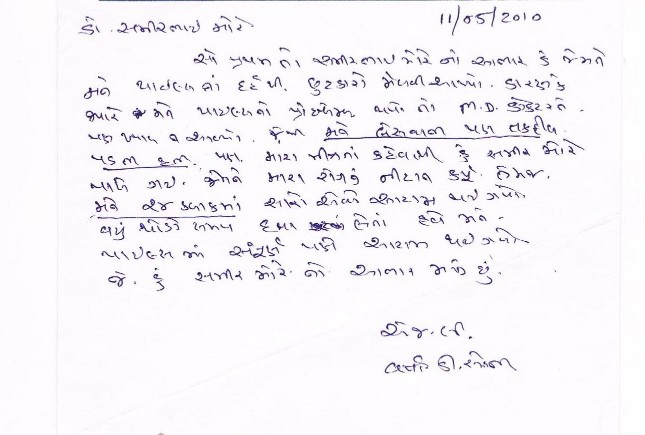 ડો. સમીરભાઈ મોરે
11/05/2010
સૌ પ્રથમ તો સમીરભાઈ મોરે નો આભાર કે જેમને
મને પાઇલ્સનાં દર્દથી છુટકારો મેળવી આપ્યો. કારણ કે
જ્યારે મને પાઇલ્સનો પ્રોબ્લેમ થયો તો M.D. ડૉક્ટરને
પણ ખ્યાલ ન આવ્યો. જેથી મને બેસવામાં પણ તકલીફ
પડતી હતી. પણ મારા મીત્રનાં કહેવાથી હું સમીર મોરે
પાસે ગયો. એમને મારા રોગનું નીદાન કર્યું તેમજ
મને ૨૪ કલાકમાં આરામ થઈ ગયો.
વધુ થોડો સમય દવા લેતાં હવે મને
પાઇલ્સ માં સંપૂર્ણ પણે આરામ થઈ ગયો
જે. હું સમીર મોરે નો આભાર માનું છું.
એજ લી.